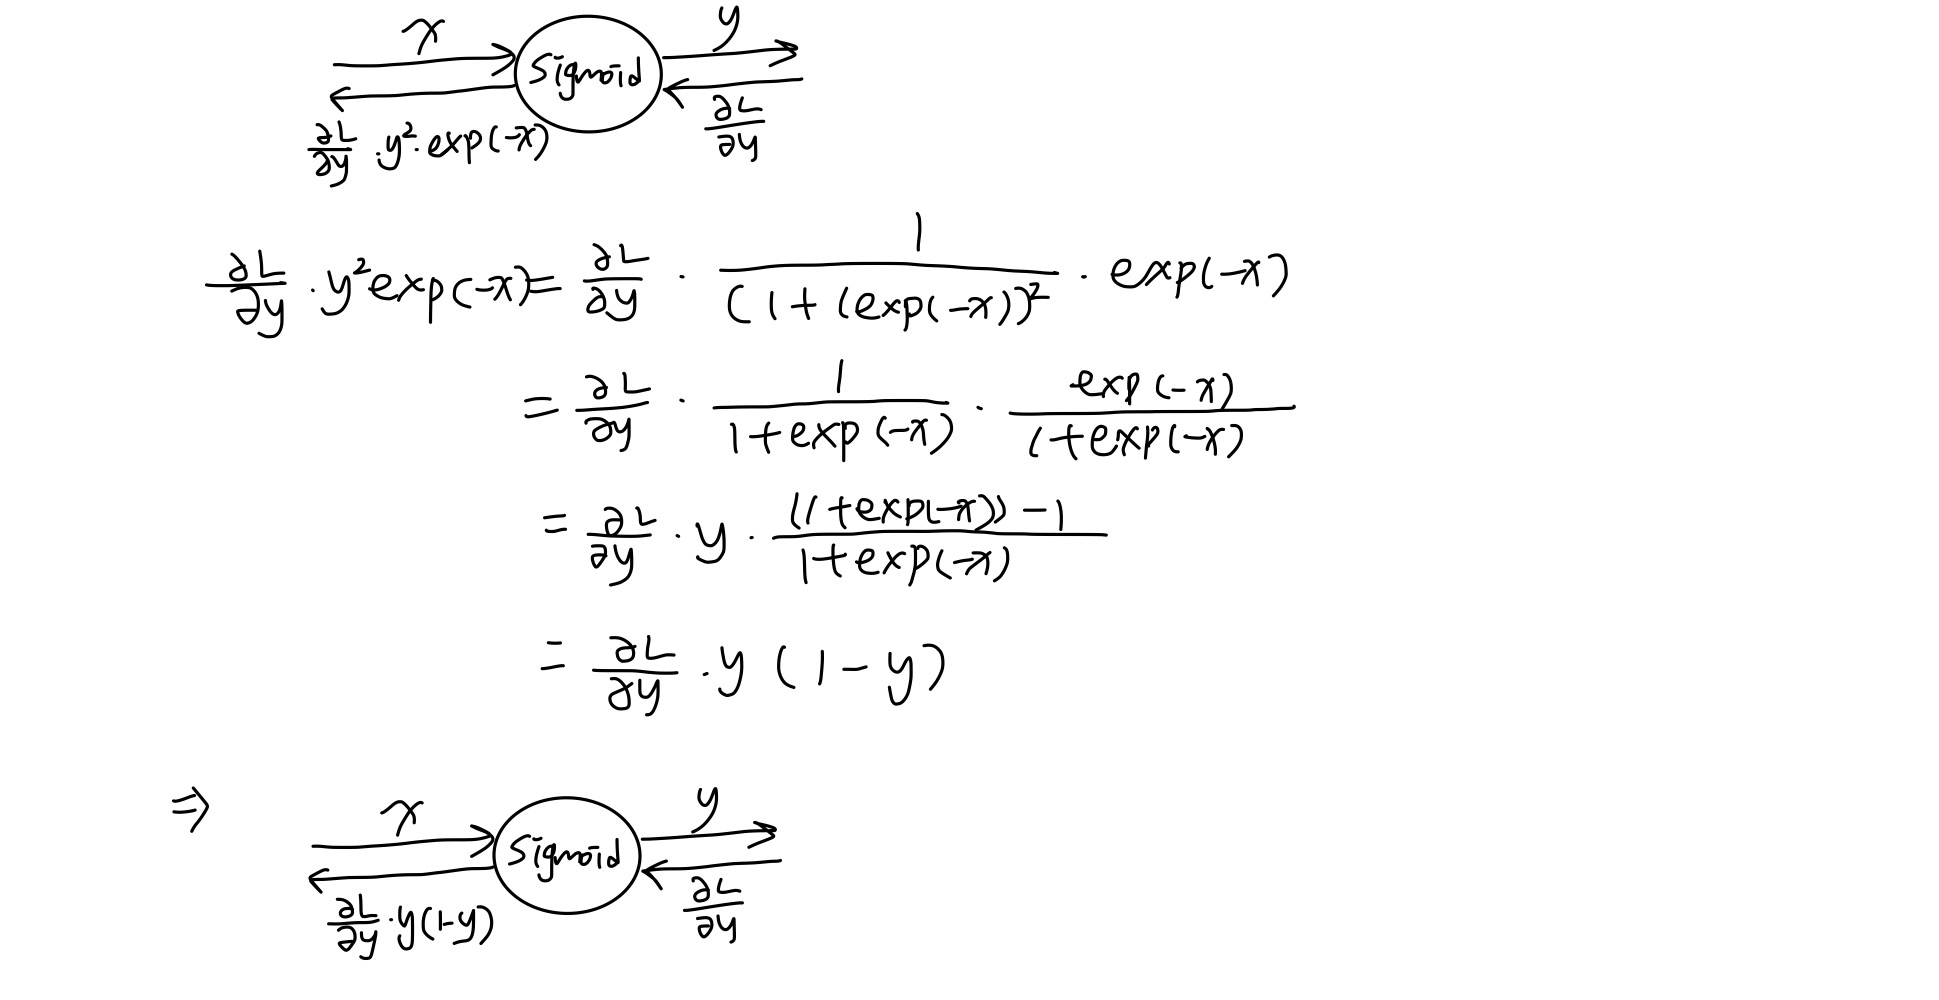 x Sigmoid y
∂L/∂y · y² · exp(-x) ∂L/∂y
∂L/∂y · y² exp(-x) = ∂L/∂y · 1/(1+(exp(-x))² · exp(-x)
= ∂L/∂y · 1/1+exp(-x) · exp(-x)/1+exp(-x)
= ∂L/∂y · y · ((1+exp(-x)) - 1/1+exp(-x)
= ∂L/∂y · y (1-y)
⇒ x Sigmoid y
∂L/∂y · y(1-y) ∂L/∂y